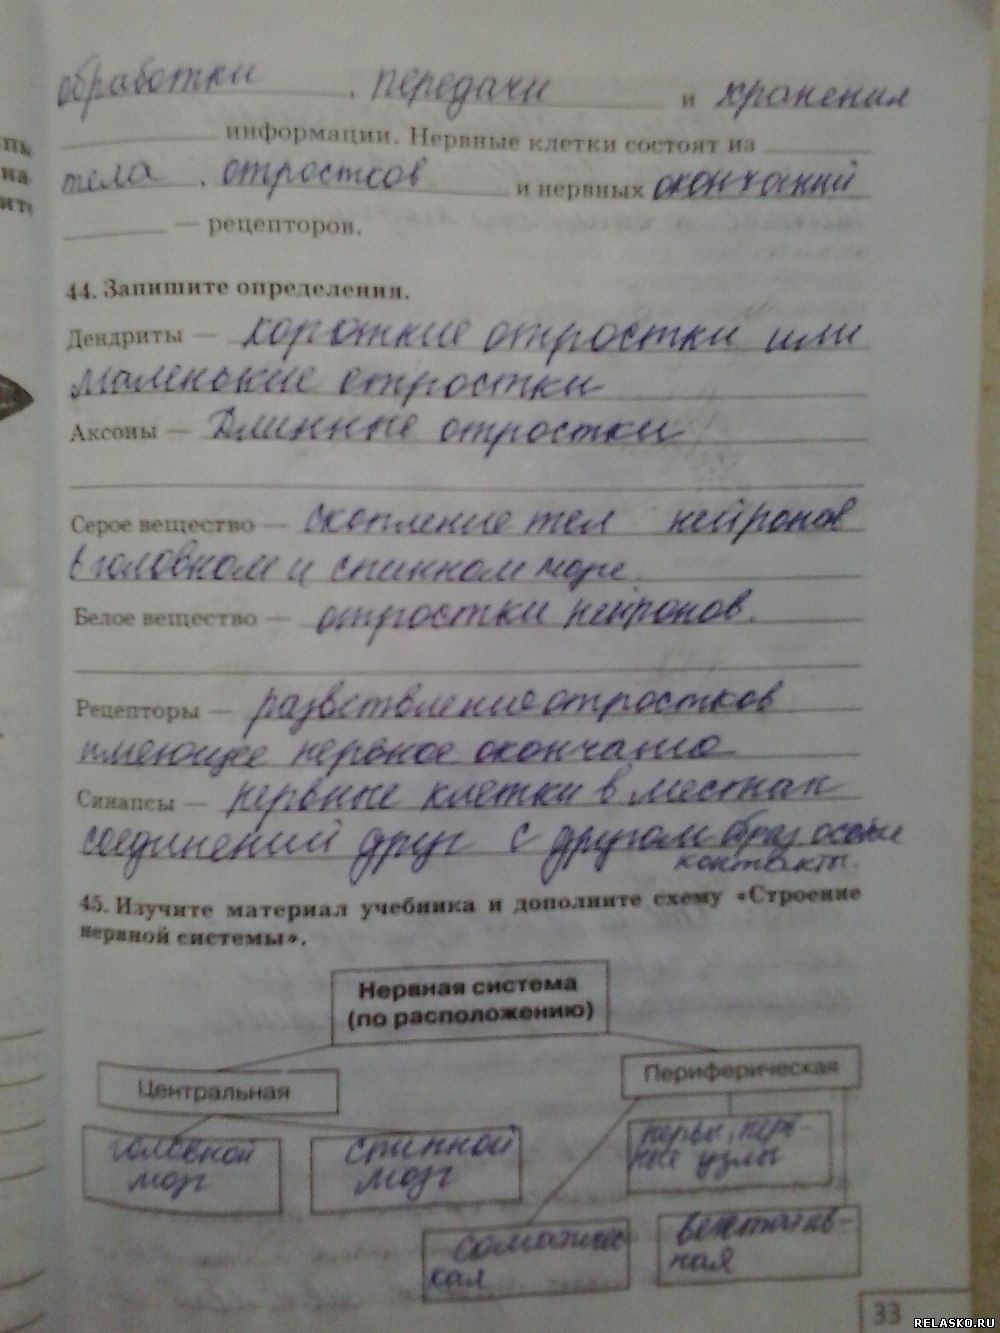 обработки, передачи и хранения
информации. Нервные клетки состоят из
тела, отростков и нервных окончаний
— рецепторов.
44. Запишите определения.
Дендриты — короткие отростки или
маленькие отростки
Аксоны — Длинные отростки
Серое вещество — скопление тел нейронов
в головном и спинном мозге.
Белое вещество — отростки нейронов.
Рецепторы — разветвление отростков
имеющее нервное окончание
Синапсы — нервные клетки в местах
соединений друг с другом
контакты.
45. Изучите материал учебника и дополните схему «Строение
нервной системы».
Нервная система
(по расположению)
Центральная
Периферическая
головной
мозг
спинной
мозг
нервы, нерв-
ные узлы
соматичес
кая
вегетатив-
ная
33
RELASKO.RU